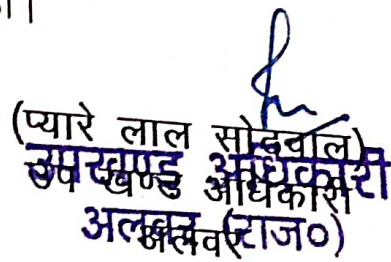 ।
(प्यारे लाल सोढवाल)
उपखण्ड अधिकारी
उप खण्ड अधिकारी
अलवर (राज०)
अलवर